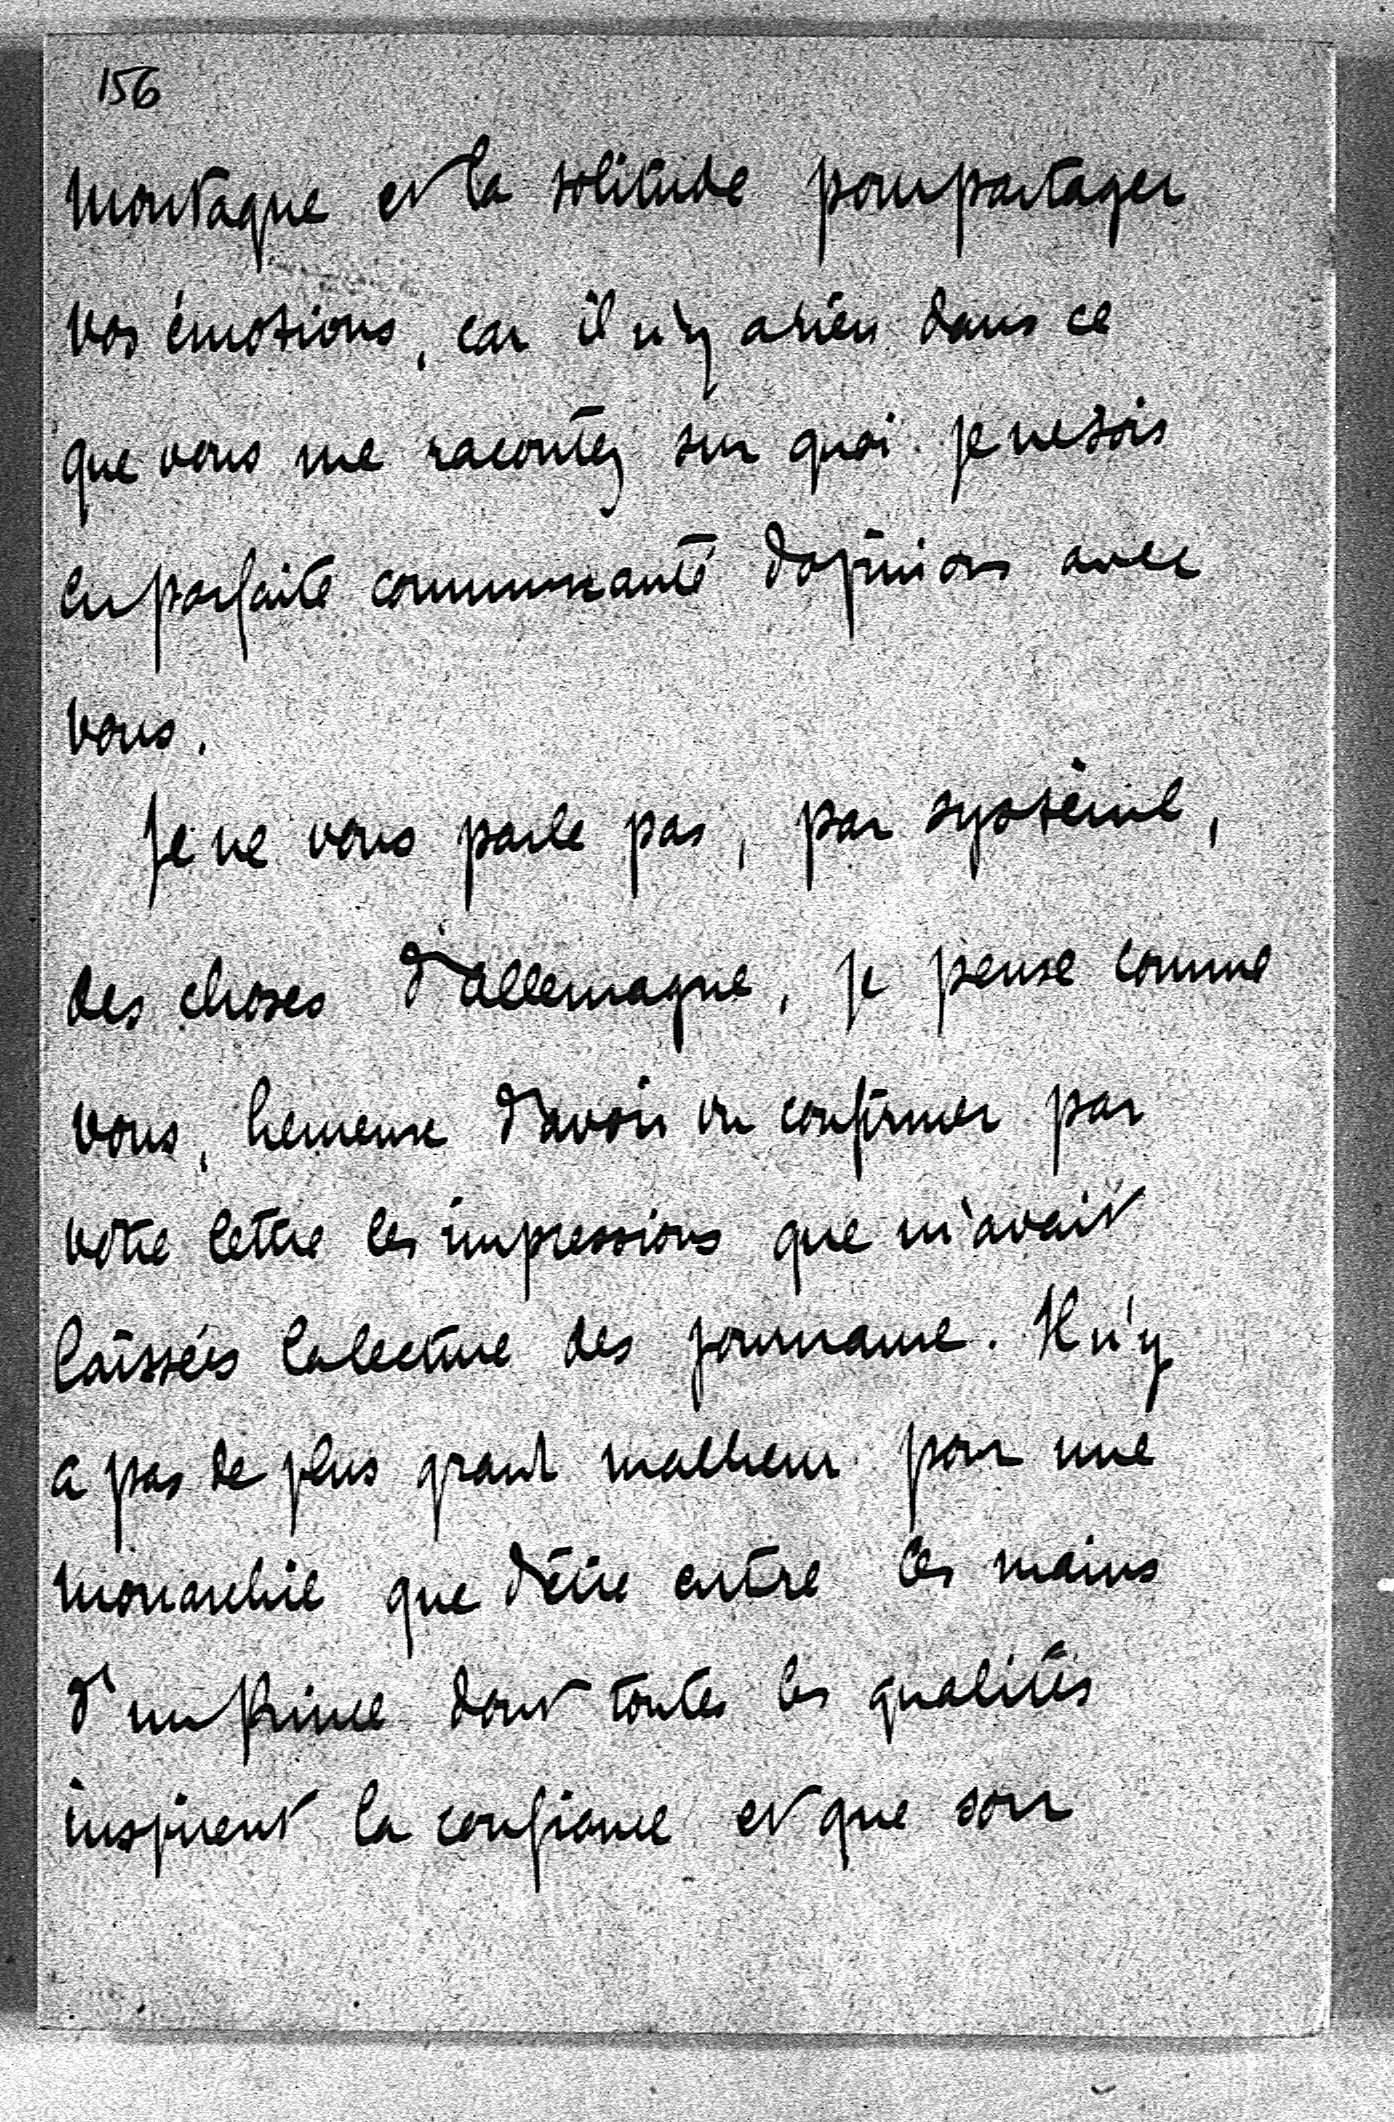 156
montagne et la solitude pour partager
vos émotions, car il n'y a rien dans ce
que vous me racontez sur quoi je ne sois
en parfaite communauté d'opinions avec
vous.
Je ne vous parle pas, par système,
des choses d'Allemagne, je pense comme
vous, heureux d'avoir vu confirmer par
votre lettre les impressions que m'avait
laissées la lecture des journaux. Il n'y
a pas de plus grand malheur pour une
monarchie que d'être entre les mains
d'un Prince dont toutes les qualités
inspirent la confiance et que son